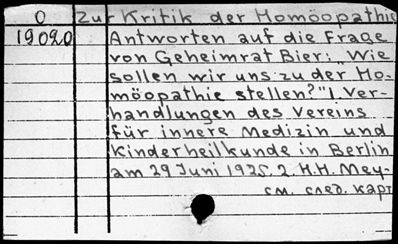 O Zur Kritik der Homöopathie
19020 Antworten auf die Frage
von Geheimrat Bier: „Wie
sollen wir uns zu der Ho-
möopathie stellen?" 1 Ver-
handlungen des Vereins
für innere Medizin und
Kinderheilkunde in Berlin
am 29 Juni 1925. 2. H.H. Mey-
см. след. карт